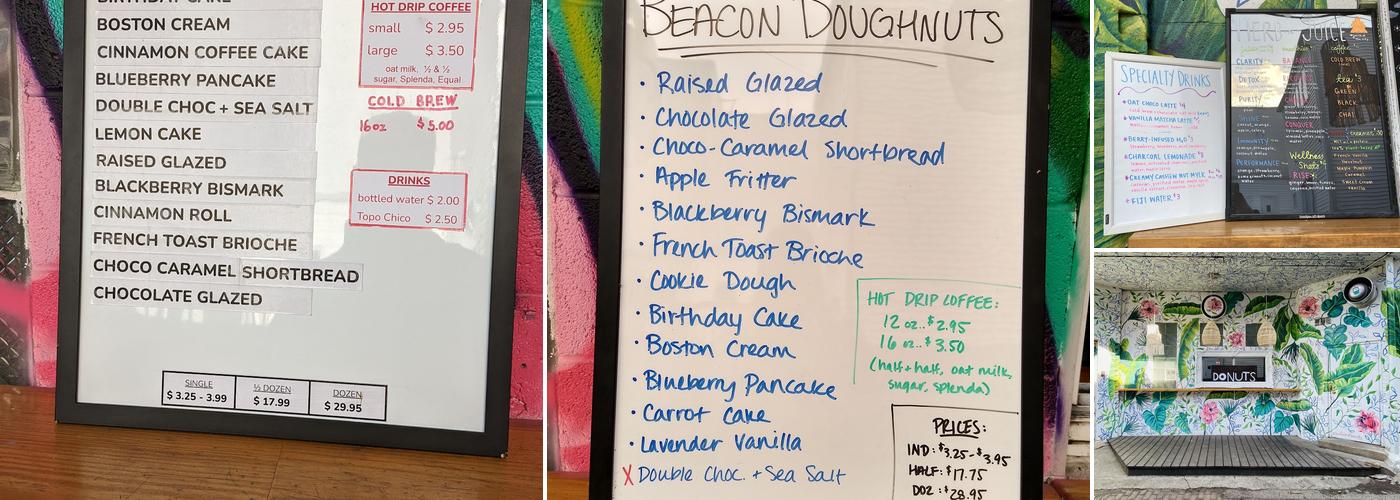 BIRTHDAY CAKE
BOSTON CREAM
CINNAMON COFFEE CAKE
BLUEBERRY PANCAKE
DOUBLE CHOC + SEA SALT
LEMON CAKE
RAISED GLAZED
BLACKBERRY BISMARK
CINNAMON ROLL
FRENCH TOAST BRIOCHE
CHOCO CARAMEL SHORTBREAD
CHOCOLATE GLAZED
HOT DRIP COFFEE
small $ 2.95
large $ 3.50
oat milk, ½ & ½
sugar, Splenda, Equal
COLD BREW
16oz $5.00
DRINKS
bottled water $ 2.00
Topo Chico $ 2.50
SINGLE
$ 3.25 - 3.99
½ DOZEN
$ 17.99
DOZEN
$ 29.95
BEACON DOUGHNUTS
• Raised Glazed
• Chocolate Glazed
• Choco-Caramel Shortbread
• Apple Fritter
• Blackberry Bismark
• French Toast Brioche
• Cookie Dough
• Birthday Cake
• Boston Cream
• Blueberry Pancake
• Carrot Cake
• Lavender Vanilla
X Double Choc. + Sea Salt
HOT DRIP COFFEE:
12 oz..$2.95
16 oz..$3.50
(half+half, oat milk,
sugar, splenda)
PRICES:
IND: $3.25-$3.95
HALF: $17.75
DOZ: $28.95
SPECIALTY DRINKS
OAT CHOCO LATTE $4
VANILLA MATCHA LATTE
BERRY-INFUSED H2O $3
CHARCOAL LEMONADE $3
CREAMY CASHEW NUT MYLK
FIJI WATER $3
JUICE
CLARITY
DETOX
PURITY
SHINE
IMMUNITY
PERFORMANCE
BALANCE
CONQUER
Wellness
Shots
RISE
coffee
COLD BREW
tea $3
GREEN
BLACK
CHAI
French Vanilla
Hazelnut
Maple Pecan
Caramel
Sweet Cream
Vanilla
DONUTS